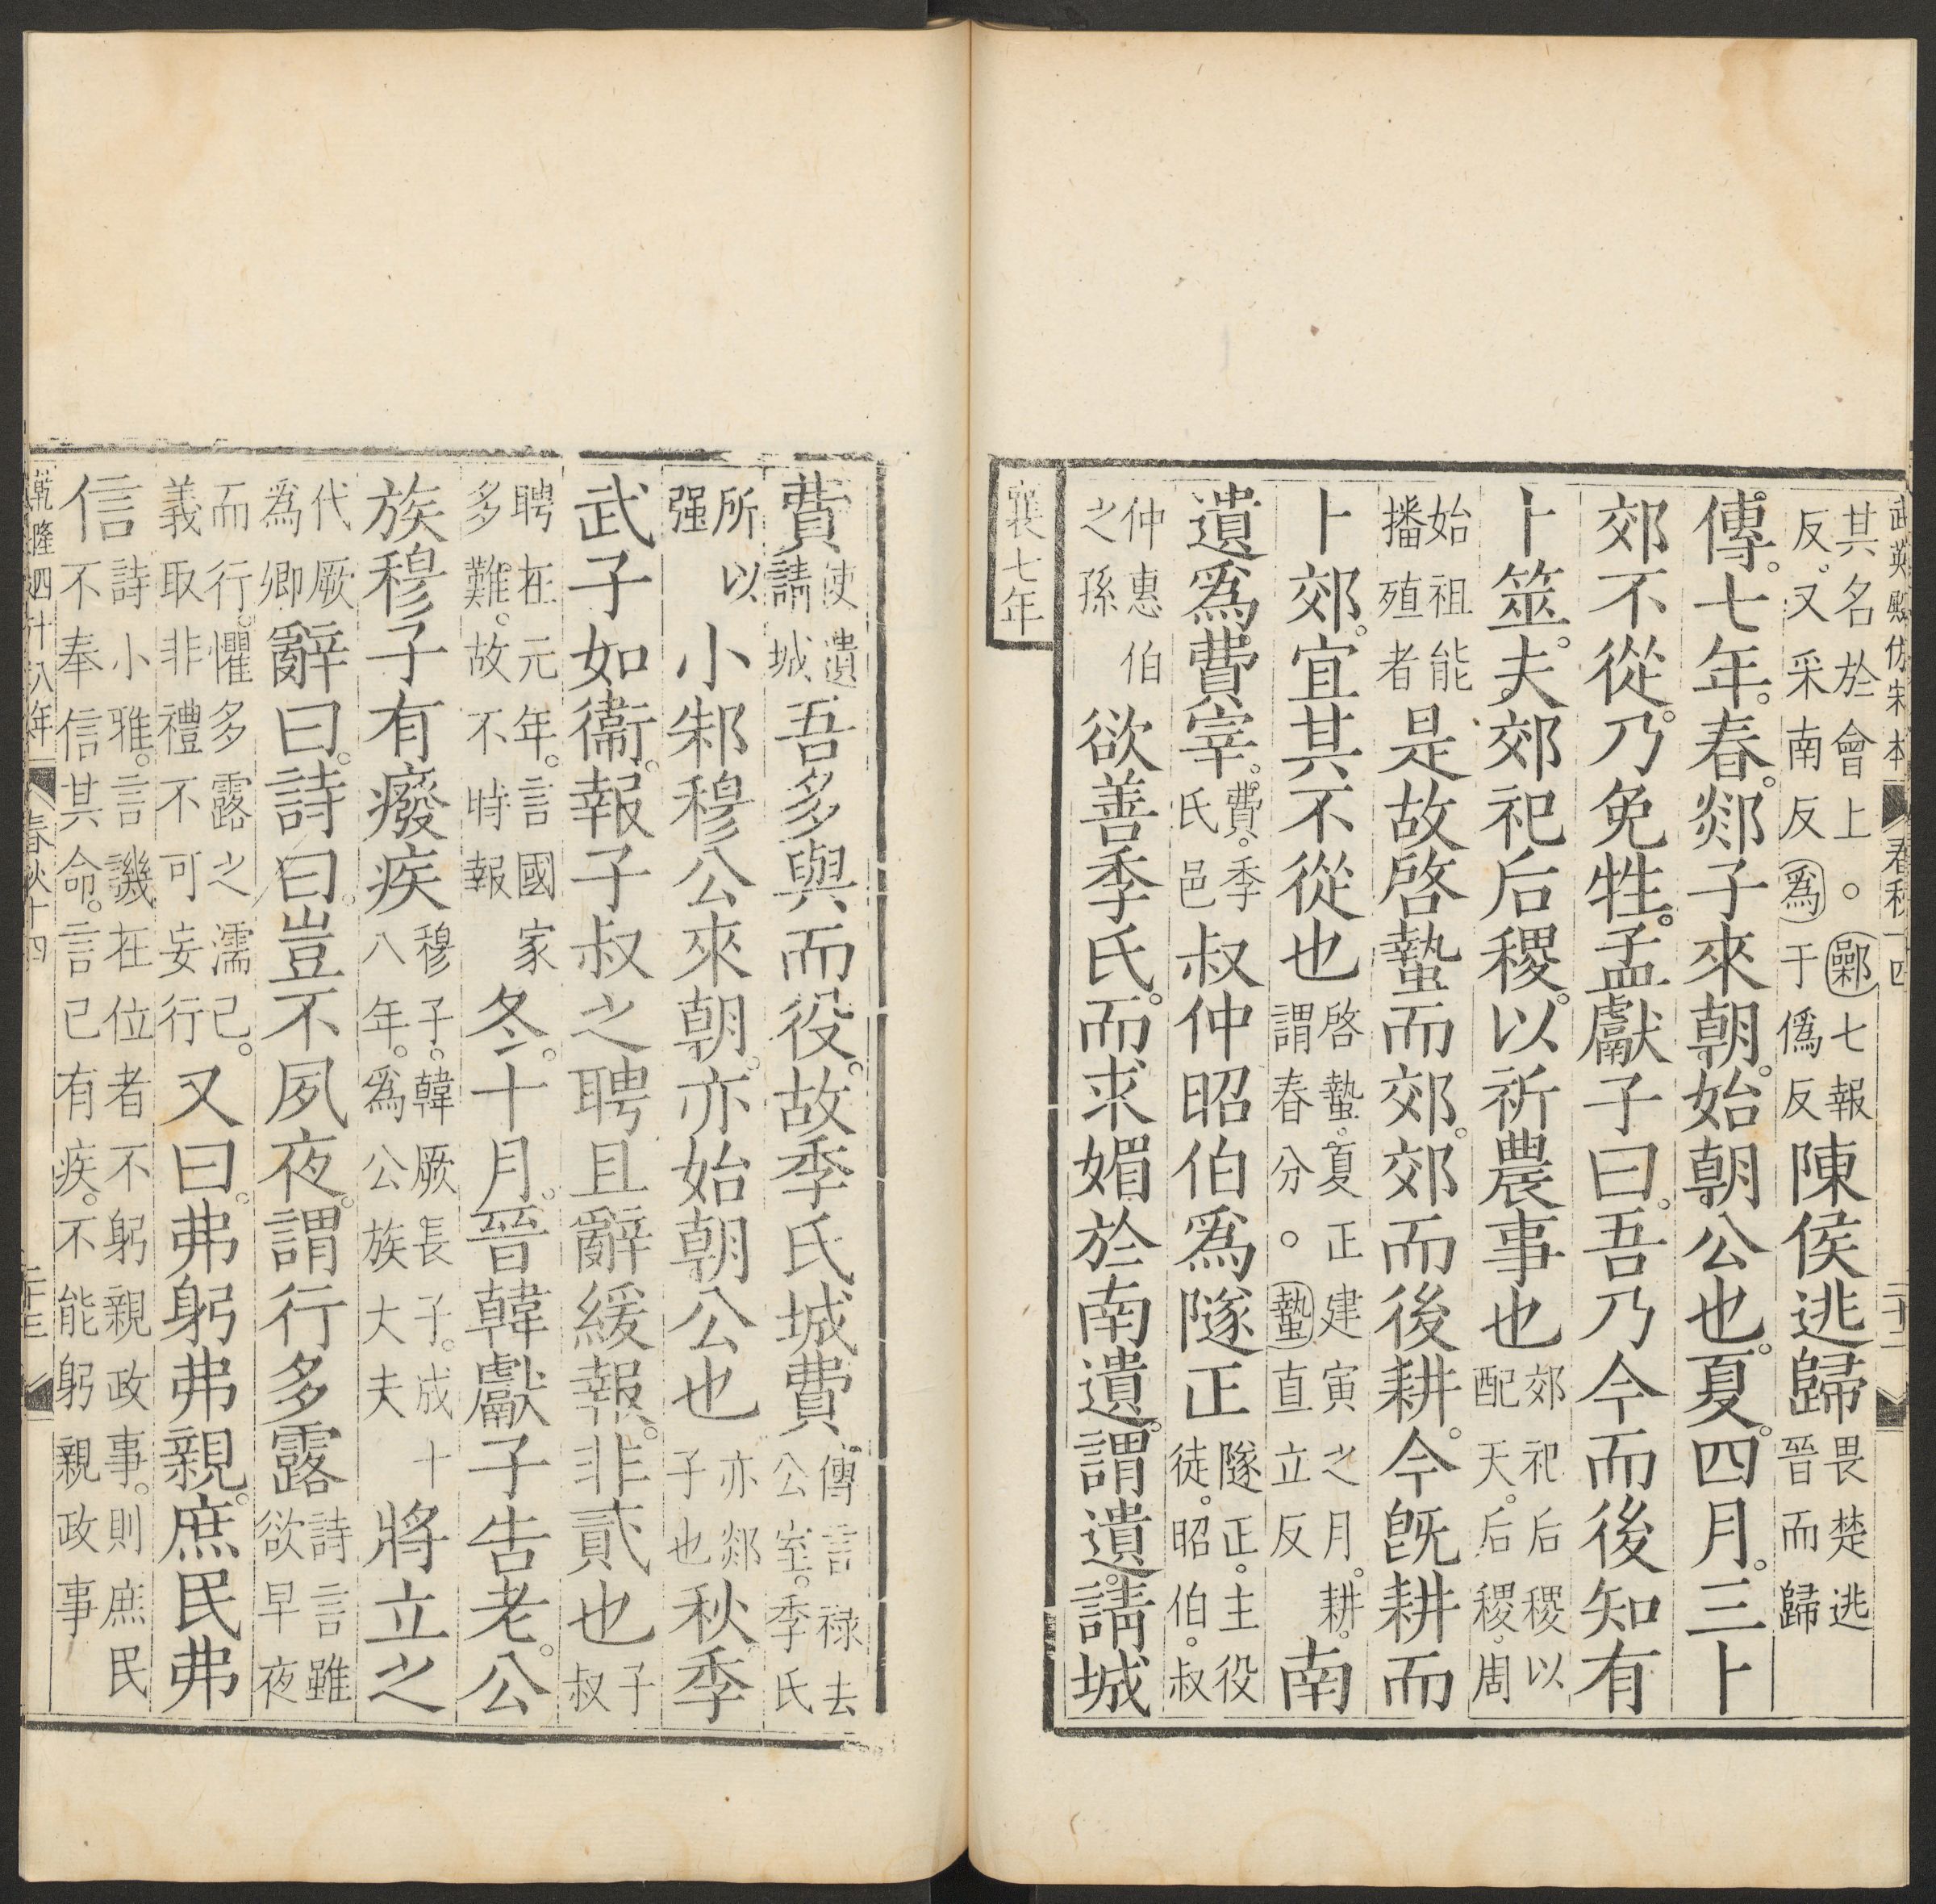 武英殿仿宋本 春秋十四 二十二
其名於會上。鄵七報
反又采南反爲于僞反
陳侯逃歸
畏楚逃
晉而歸
傳七年春郯子來朝始朝公也夏四月三卜
郊不從乃免牲孟獻子曰吾乃今而後知有
卜筮夫郊祀后稷以祈農事也
郊祀后稷以
配天后稷周
始祖能
播殖者
是故啓蟄而郊郊而後耕今旣耕而
卜郊宜其不從也
啓蟄夏正建寅之月耕
謂春分。蟄直立反
南
遺爲費宰
費季
氏邑
叔仲昭伯爲隧正
隧正主役
徒昭伯叔
仲惠伯
之孫
欲善季氏而求媚於南遺謂遺請城
襄七年
費
使遺
請城
吾多與而役故季氏城費
傳言祿去
公室季氏
所以
强
小邾穆公來朝亦始朝公也
亦郯
子也
秋季
武子如衞報子叔之聘且辭緩報非貳也
子
叔
聘在元年言國家
多難故不時報
冬十月晉韓獻子告老公
族穆子有癈疾
穆子韓厥長子成十
八年爲公族大夫
將立之
代厥
爲卿
辭曰詩曰豈不夙夜謂行多露
詩言雖
欲早夜
而行懼多露之濡己
義取非禮不可妄行
又曰弗躬弗親庶民弗
信
詩小雅言譏在位者不躬親政事則庶民
不奉信其命言己有疾不能躬親政事
乾隆四十八年 春秋十四 二十三